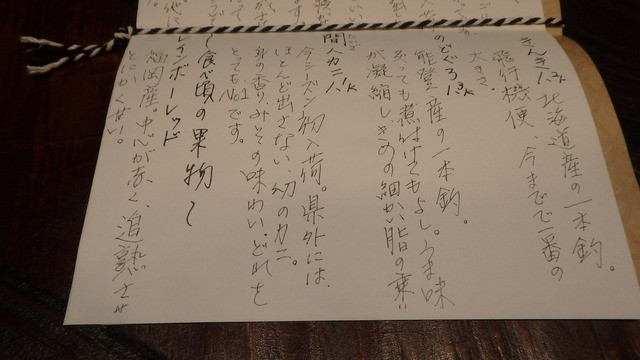 きんき1.3K 北海道産の一本釣。
飛行機便、今までで一番の
大きさ。
のどぐろ1.3K
能登産の一本釣。
ぶっても煮付けてもよし。うま味
が凝縮し、きめの細かい脂の乗り
間人カニ1.1K
今シーズン初入荷。県外には、
ほとんど出さない、幻のカニ。
身の香り、みその味わい、どれを
とってもNo.1です。
〜食べ頃の果物〜
レインボーレッド
福岡産。中心が赤く、追熟させ
とにかく甘い。